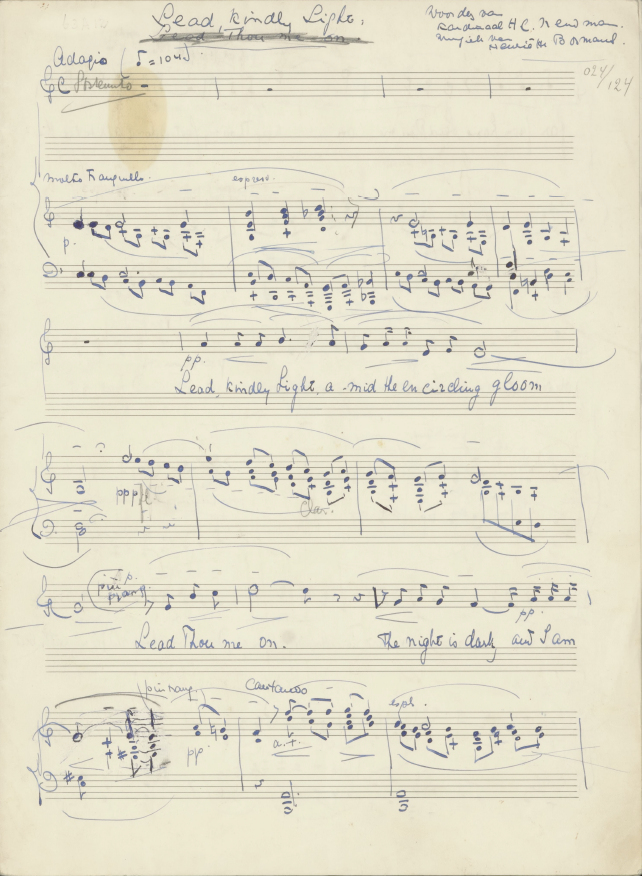 Lead, kindly Light,
Lead Thou me on.
Woorden van
Kardinaal H C. Newman.
Muziek van
Henriëtte Bosmans.
Adagio (♪ = 104).
C Sostenuto
024/
124
molto tranquillo.
espress.
p.
pp.
Lead, kindly Light, a-mid the encircling gloom
ppp
più p.
pp.
Lead Thou me on. The night is dark and I am
più tranq.
Cantando
espr.
pp.